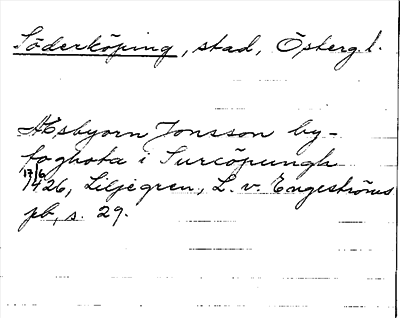 Söderköping, stad, Österg.l.
Æsbyorn Jonsson by-
foghota i Surcöpungh
17/6 1426, Liljegren, L. v. Engeströms
pb, s. 29.